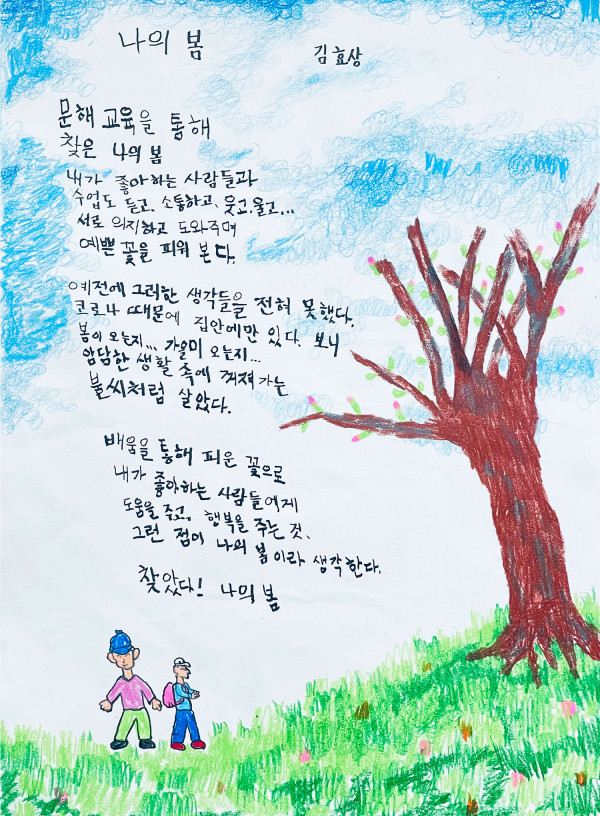 나의 봄
김효상
문해 교육을 통해
찾은 나의 봄
내가 좋아하는 사람들과
수업도 듣고, 소통하고, 웃고, 울고...
서로 의지하고 도와주며
예쁜 꽃을 피워 본다.
예전에 그러한 생각들을 전혀 못했다.
코로나 때문에 집안에만 있다 보니
봄이 오는지... 가을이 오는지...
암담한 생활 속에 꺼져가는
불씨처럼 살았다.
배움을 통해 피운 꽃으로
내가 좋아하는 사람들에게
도움을 주고, 행복을 주는 것,
그런 점이 나의 봄이라 생각한다.
찾았다! 나의 봄